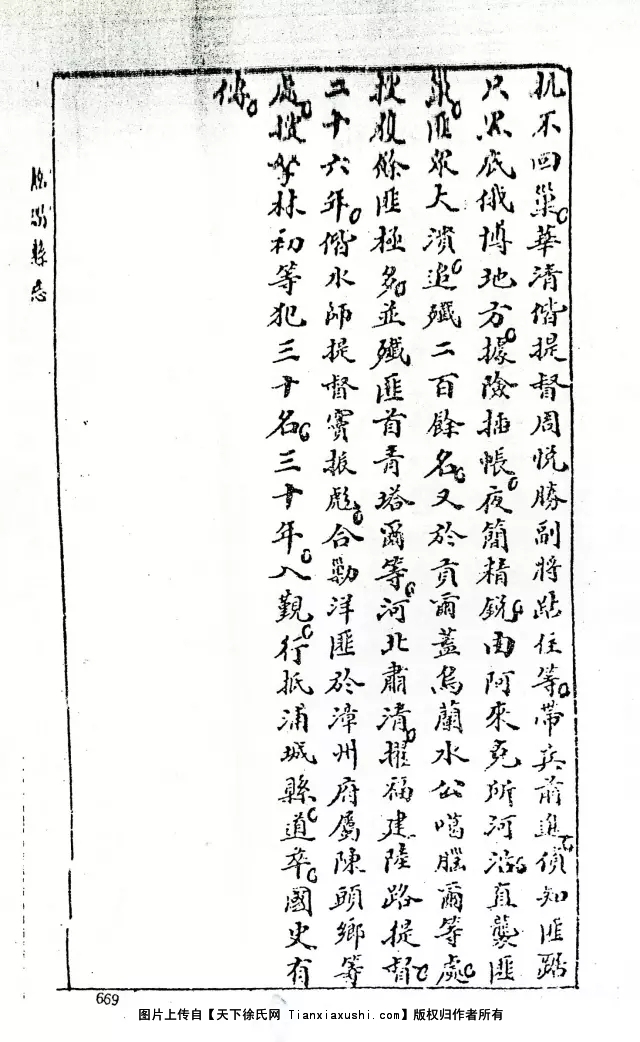 抗不回巢。華清偕提督周悅勝副將站住等。帶兵前進。偵知匪踞
只思底俄博地方。據險插帳。夜簡精銳。由阿來克所河沿。直襲匪
巢。匪眾大潰。追殲二百餘名。又於貢爾蓋烏蘭水公噶臘爾等處。
搜獲餘匪極多。並殲匪首青塔爾等。河北肅清。擢福建陸路提督。
二十六年。偕水師提督竇振彪。合勦洋匪於漳州府屬陳頭鄉等
處。搜拏林初等犯三十名。三十年。入覲。行抵浦城縣道卒。國史有
傳。
縣志
669
图片上传自【天下徐氏网 Tianxiaxushi.com】版权归作者所有